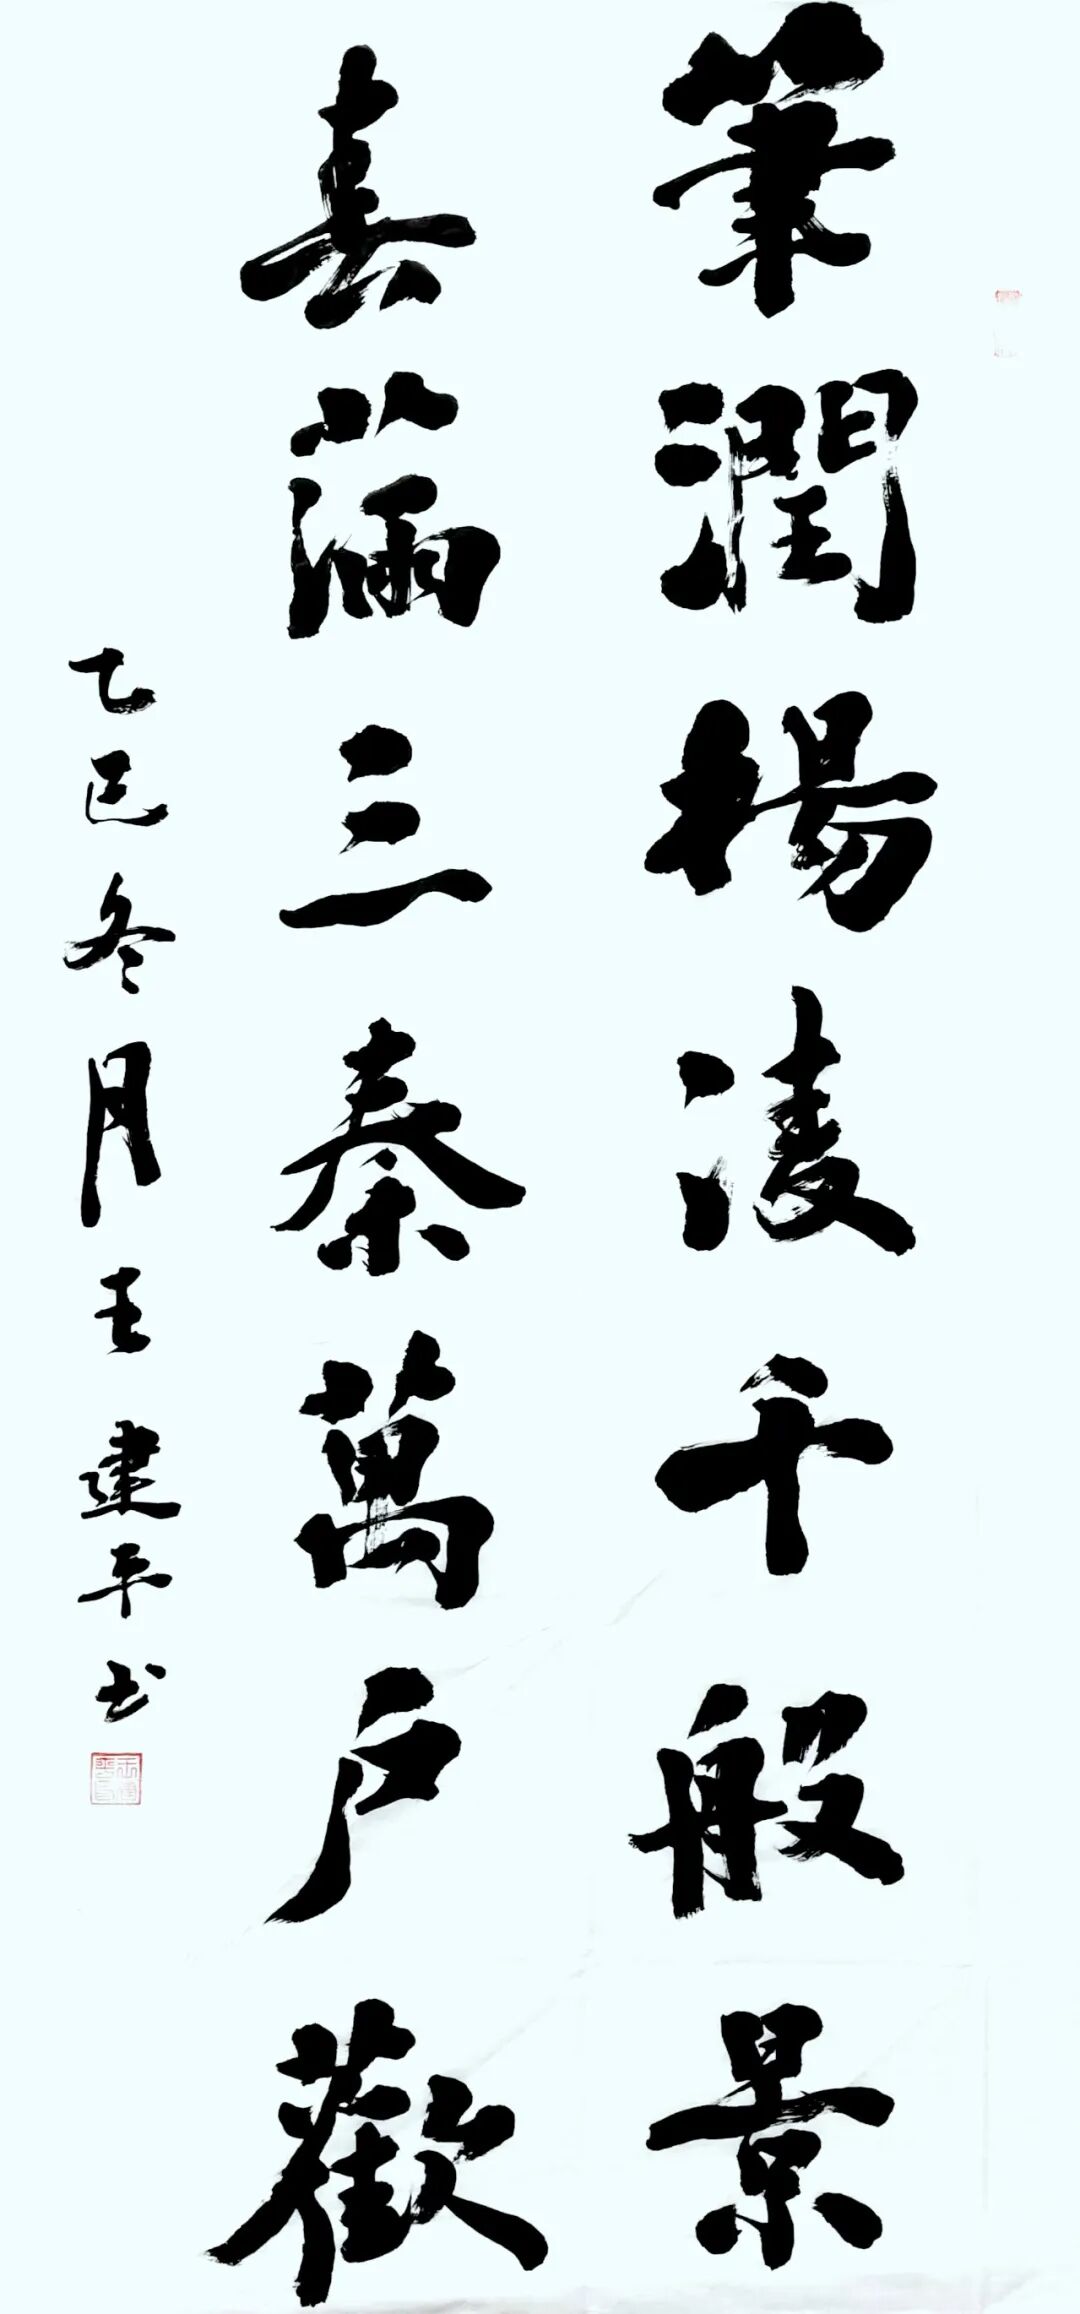 筆潤楊淩千般景
春滿三秦萬戶歡
乙巳冬月王建平书